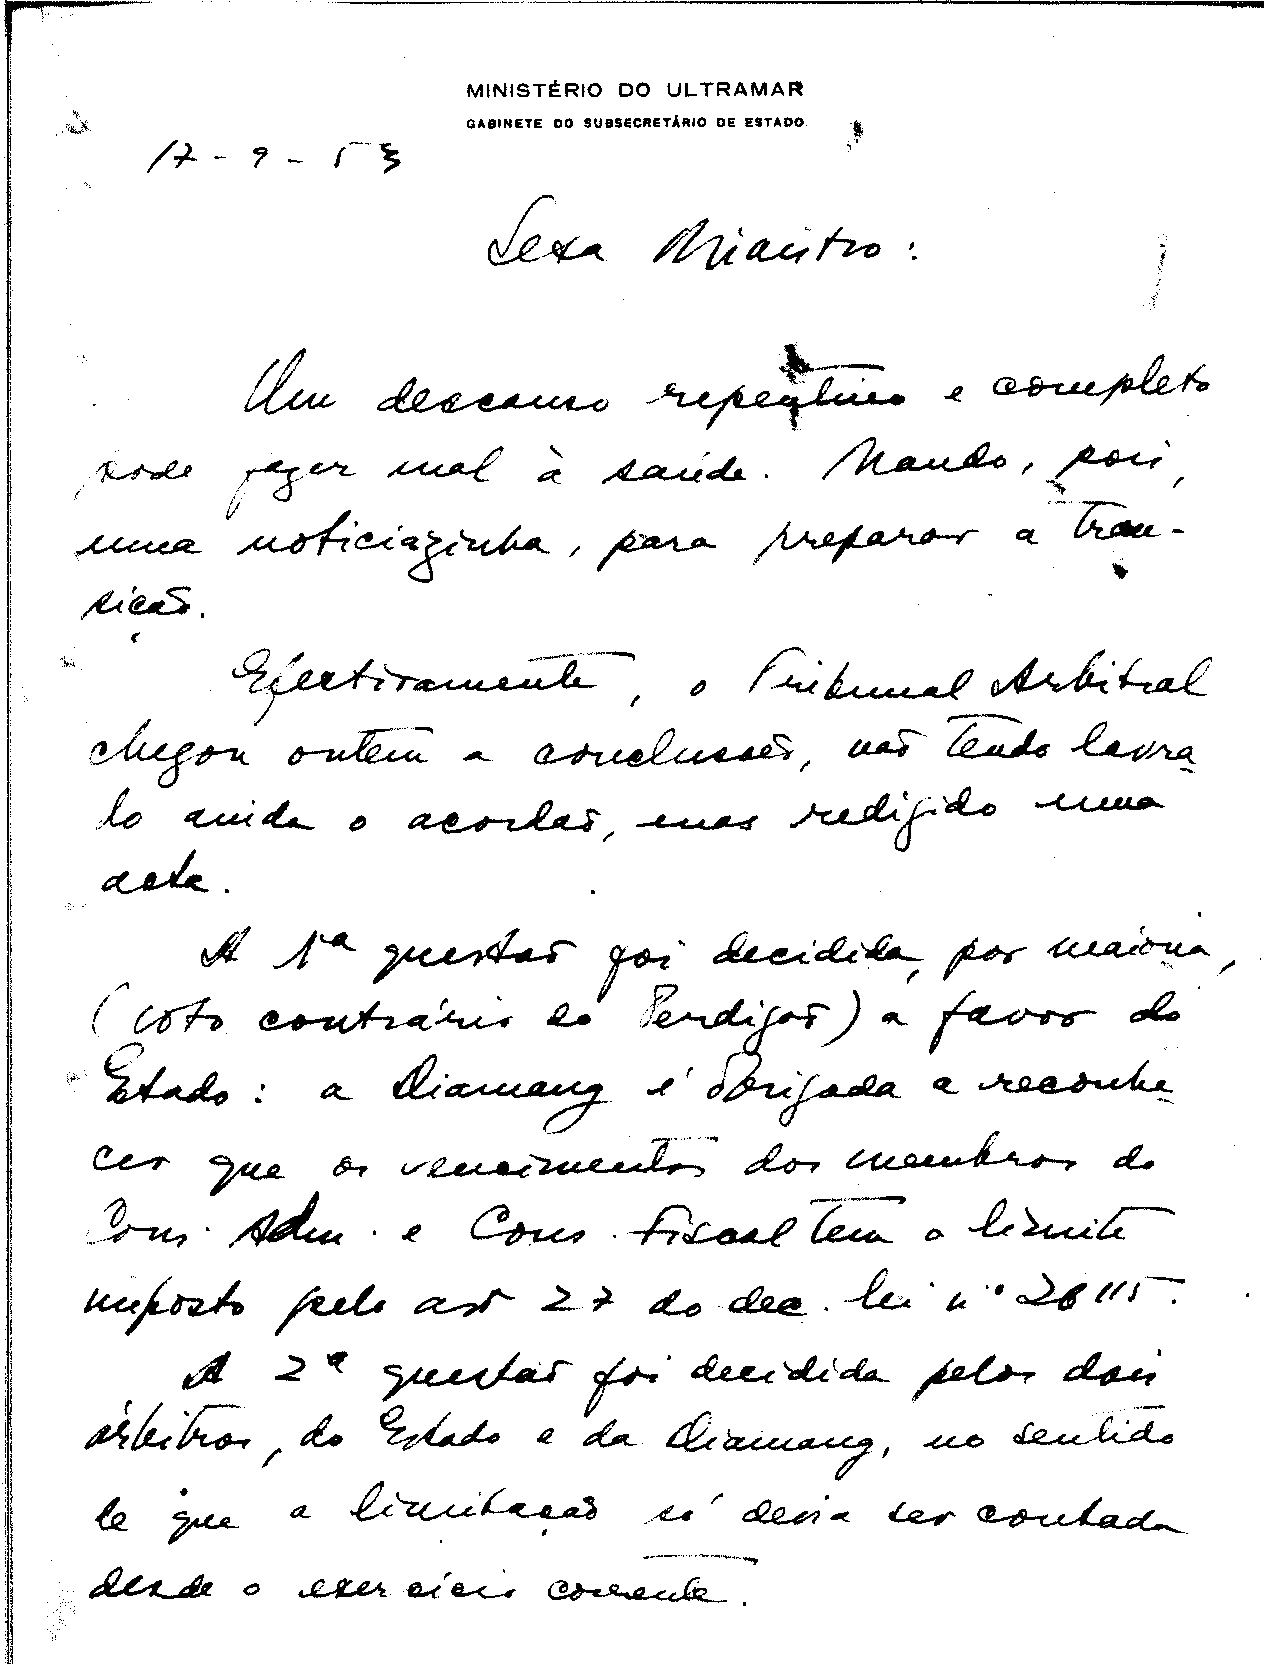 MINISTÉRIO DO ULTRAMAR
GABINETE DO SUBSECRETÁRIO DE ESTADO
17-9-53
Sexa Ministro:
Um descanso repentino e completo
pode fazer mal à saúde. Mando, pois,
uma noticiazinha, para preparar a tran-
sição.
Efectivamente, o Tribunal Arbitral
chegou ontem a conclusões, não tendo lavra-
do ainda o acordão, mas redigido uma
acta.
A 1ª questão foi decidida, por maioria,
(voto contrário do Perdigão) a favor do
Estado: a Diamang é obrigada a reconhe-
cer que os vencimentos dos membros do
Cons. Adm. e Cons. Fiscal tem o limite
imposto pelo art 27 do dec. lei nº 26115.
A 2ª questão foi decidida pelos dois
árbitros, do Estado e da Diamang, no sentido
de que a limitação só devia ser contada
desde o exercício corrente.